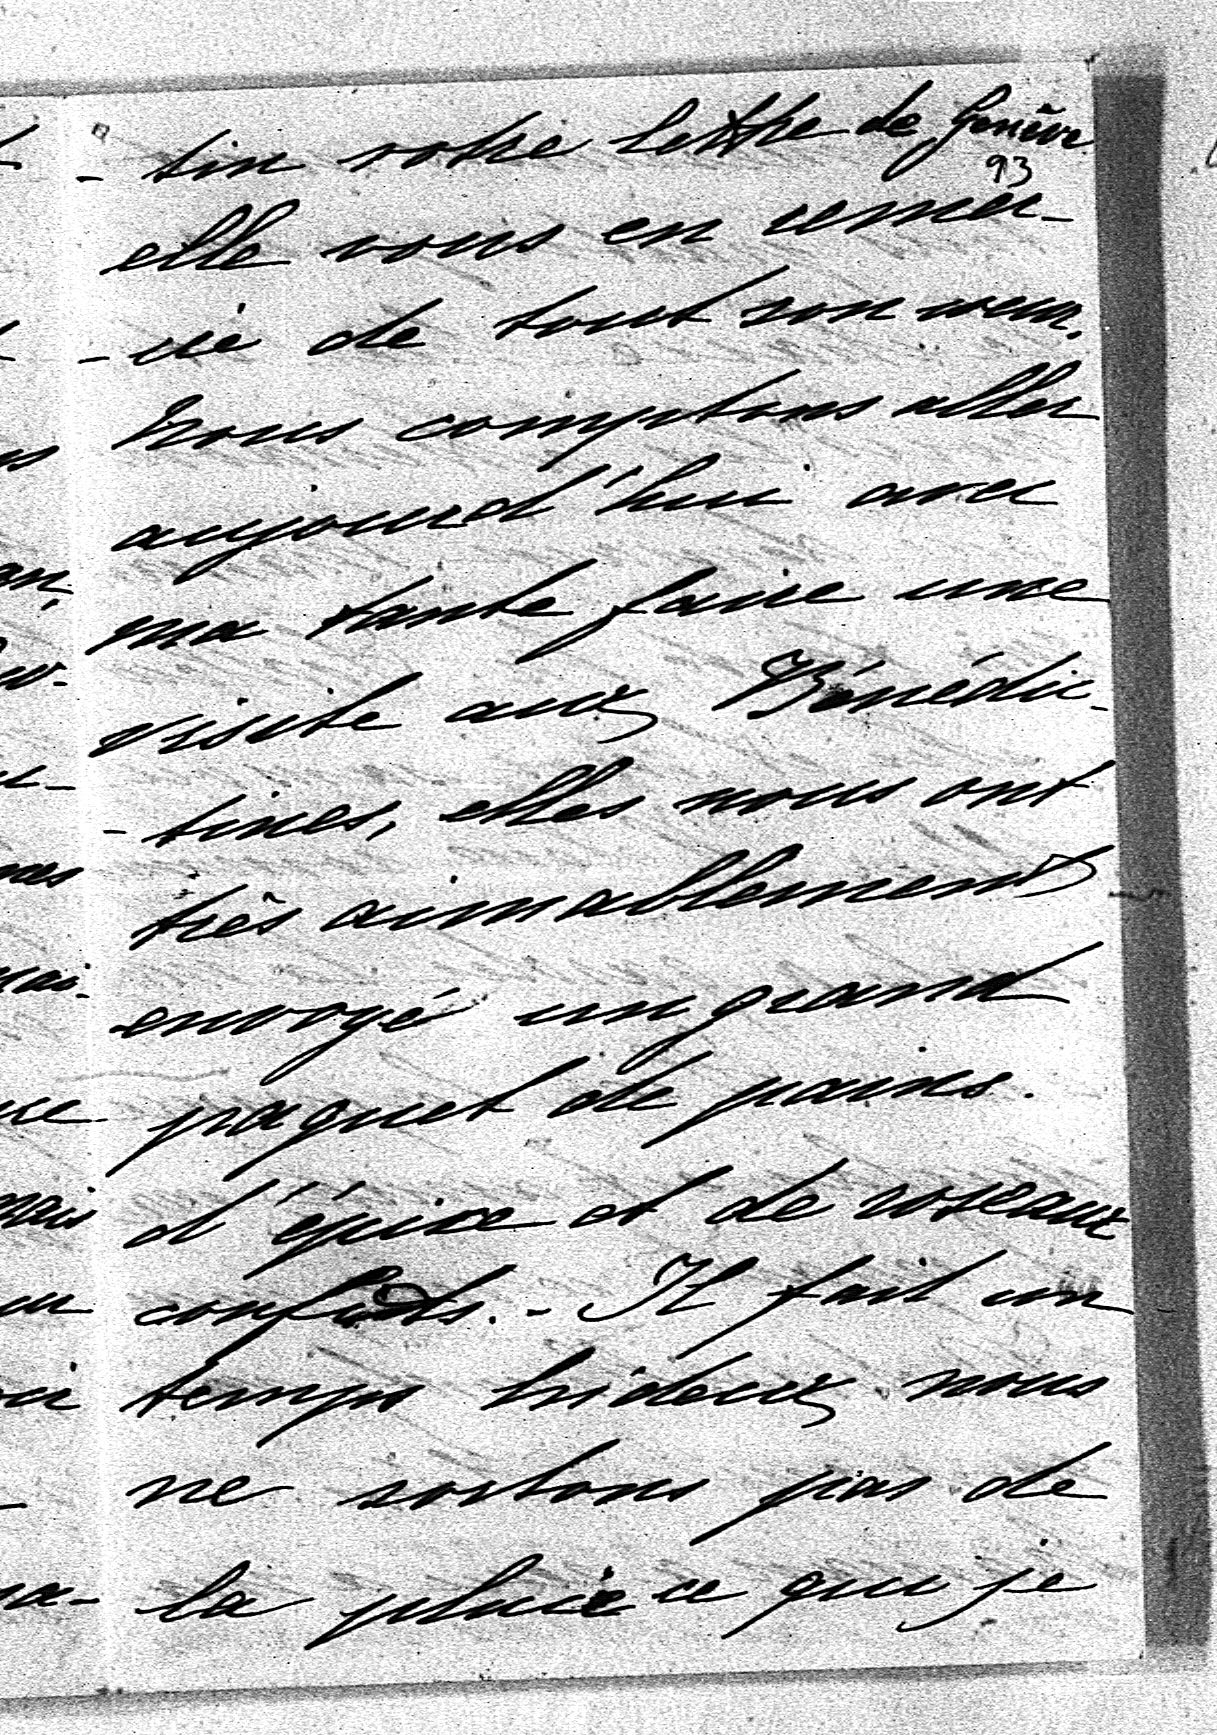 - tin votre lettre de Genève
93
elle vous en remer-
- cie de tout son cœur.
Nous comptons aller
aujourd'hui avec
ma tante faire une
visite aux Bénédic-
- tines, elles nous ont
très aimablement
envoyé un grand
paquet de pains.
d'épice et de roseaux
confits. - Il fait un
temps hideux nous
ne sortons pas de
la pluie ce qui je